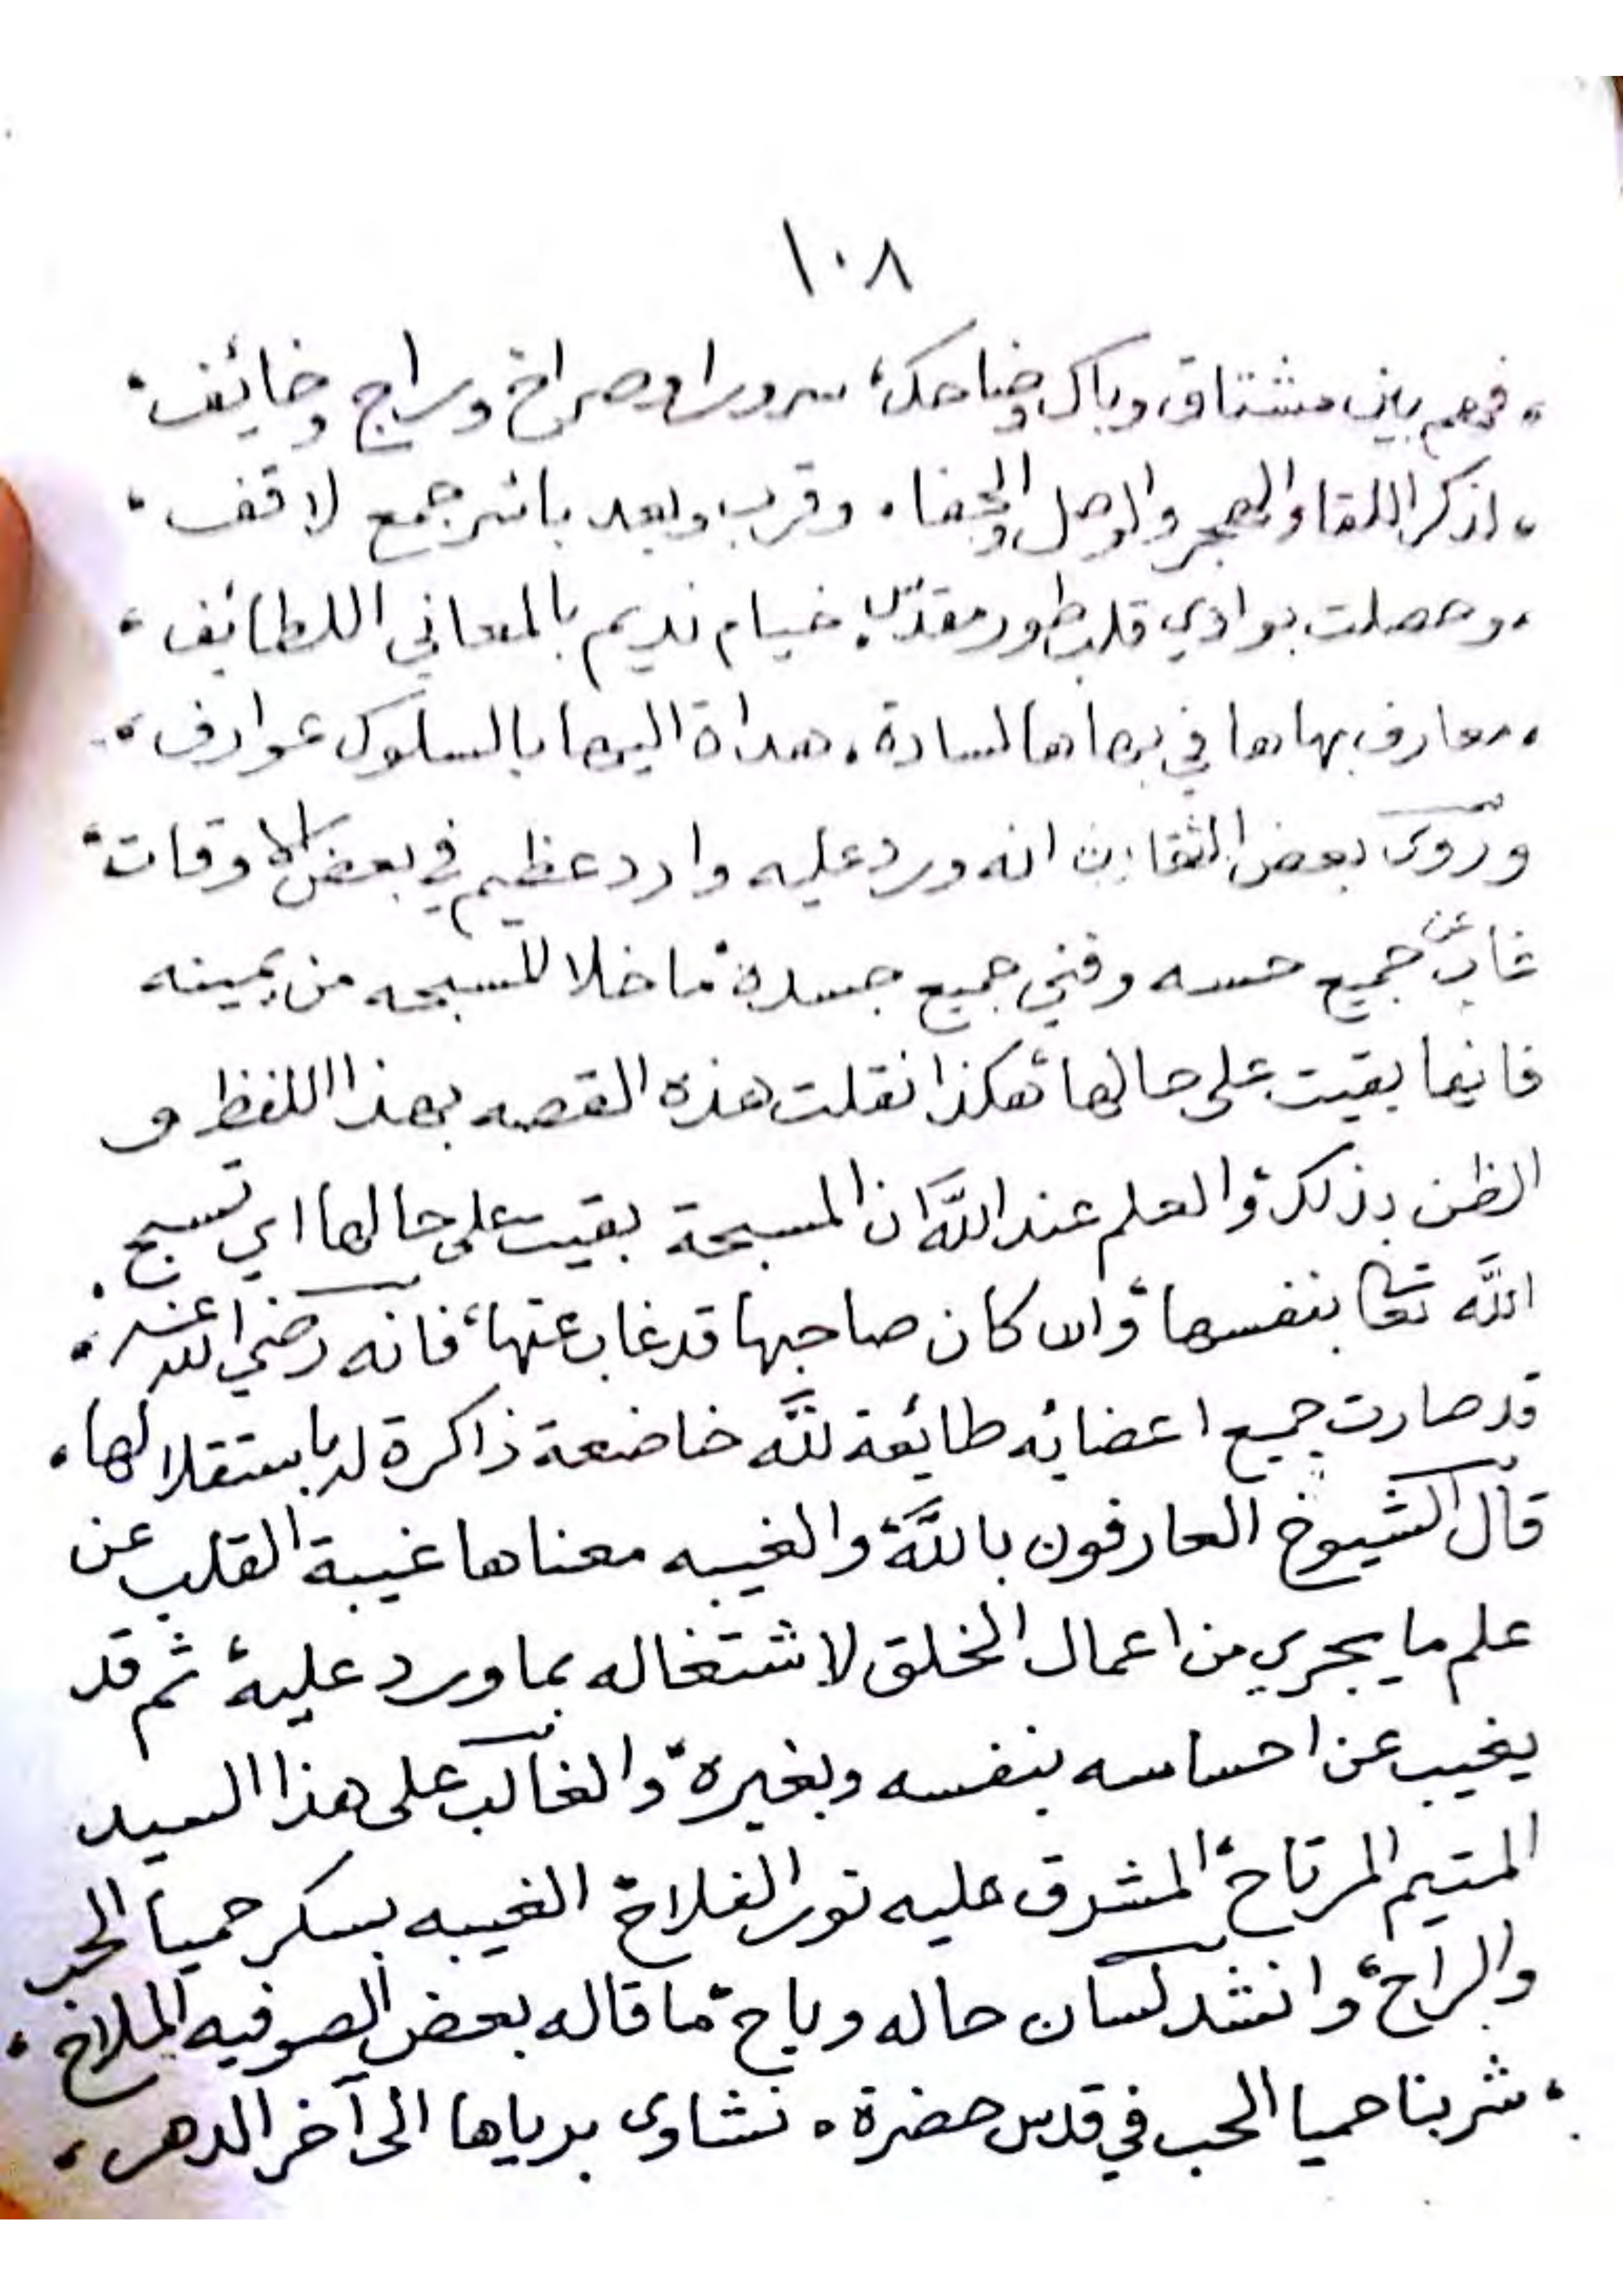 ١٠٨
، فهم بين مشتاق وباك وضاحك، سرورا وصراخ وراج وخائف،
، اذكر اللقا والهجر والوصل والجفا، وقرب وبعد باشر جمع لاقف،
، وحصلت بوادي قلب طور مقدس، خيام نديم بالمعاني اللطائف،
، معارف بهاها في بهاها لسادة، هداة اليها بالسلوك عوارف،
وروى بعض الثقات انه ورد عليه وارد عظيم في بعض الاوقات،
غاب عن جميع حسه وفني جميع جسده، ما خلا المسبحه من يمينه
فانها بقيت على حالها، هكذا نقلت هذه القصه بهذا اللفظ و
الظن بذلك، والعلم عند الله ان المسبحة بقيت على حالها اي تسبح
الله تعالى بنفسها، وان كان صاحبها قد غاب عنها، فانه رضي الله عنه،
قد صارت جميع اعضائه طائعة لله خاضعة ذاكرة له باستقلالها،
قال الشيوخ العارفون بالله، والغيبه معناها غيبة القلب عن
علم ما يجري من اعمال الخلق لاشتغاله بما ورد عليه، ثم قد
يغيب عن احساسه بنفسه وبغيره، والغالب على هذا السيد
المتيم المرتاح، المشرق عليه نور الفلاح، الغيبه بسكر حميا الحب
والراح، وانشد لسان حاله وباح، ما قاله بعض الصوفيه الملاح،
، شربنا حميا الحب في قدس حضرة، نشاوى برياها الى آخر الدهر،